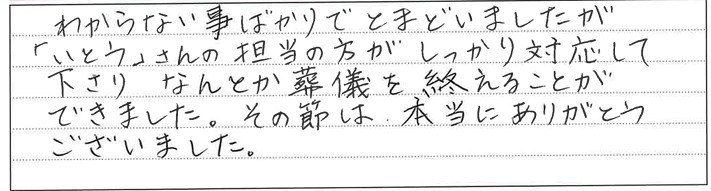 わからない事ばかりでとまどいましたが
「いとう」さんの担当の方がしっかり対応して
下さり なんとか葬儀を終えることが
できました。その節は、本当にありがとう
ございました。